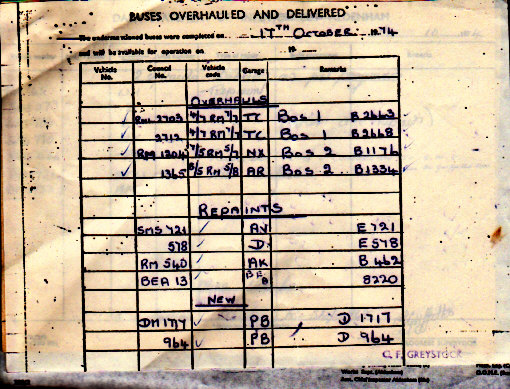 BUSES OVERHAULED AND DELIVERED
The undermentioned buses were completed on 17TH OCTOBER 1974
and will be available for operation on 19
Vehicle No. Council No. Vehicle code Garage Remarks
OVERHAULS
RML 2703 4/7 RM 7/7 TC BOS 1 B2663
2712 4/7 RM 7/7 TC BOS 1 B2668
1204 5/5 RM 5/ NX BOS 2 B1176
1365 5/5 RM 5/8 AR BOS 2 B1334
REPAINTS
SMS 721 AV E 721
578 D. E 578
RM 540 AK B 462
BEA 13 BEB 8220
NEW
DM 1717 PB D 1717
964 PB D 964
C. F. GREYSTOCK